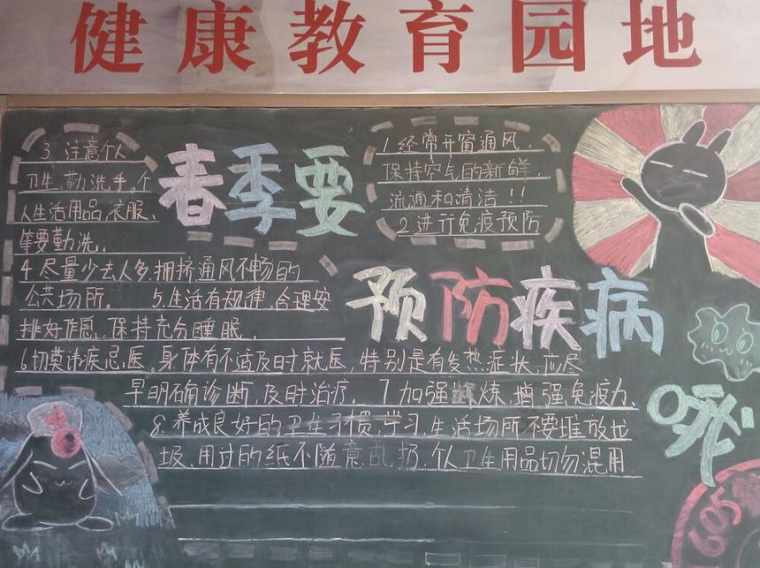 健康教育园地
春季要
预防疾病
1.经常开窗通风,
保持空气的新鲜,
流通和清洁!!
2.进行免疫预防
3.注意个人
卫生,勤洗手,个
人生活用品,衣服、
等要勤洗,,
4.尽量少去人多,拥挤通风不畅的
公共场所。 5.生活有规律,合理安
排好作息,保持充分睡眠,
6.切莫讳疾忌医,身体有不适及时就医,特别是有发热症状,应尽
早明确诊断,及时治疗, 7.加强锻炼,增强免疫力、
8.养成良好的卫生习惯,学习,生活场所不要堆放垃
圾,用过的纸不随意乱扔,个人卫生用品切勿混用
605